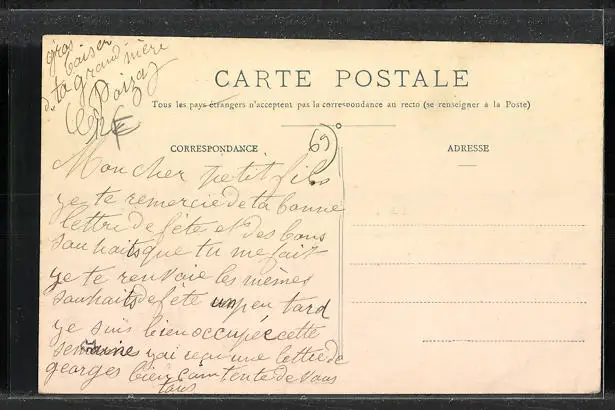 gros
baiser
de ta grand mère
CARTE POSTALE
Tous les pays étrangers n'acceptent pas la correspondance au recto (se renseigner à la Poste)
CORRESPONDANCE
69
ADRESSE
Mon cher petit fils
je te remercie de ta bonne
lettre de fête et des bons
souhaits que tu me fait
je te renvoie les mêmes
souhaits de fête un peu tard
je suis bien occupée cette
semaines j'ai reçu une lettre de
georges bien contente de vous
tous